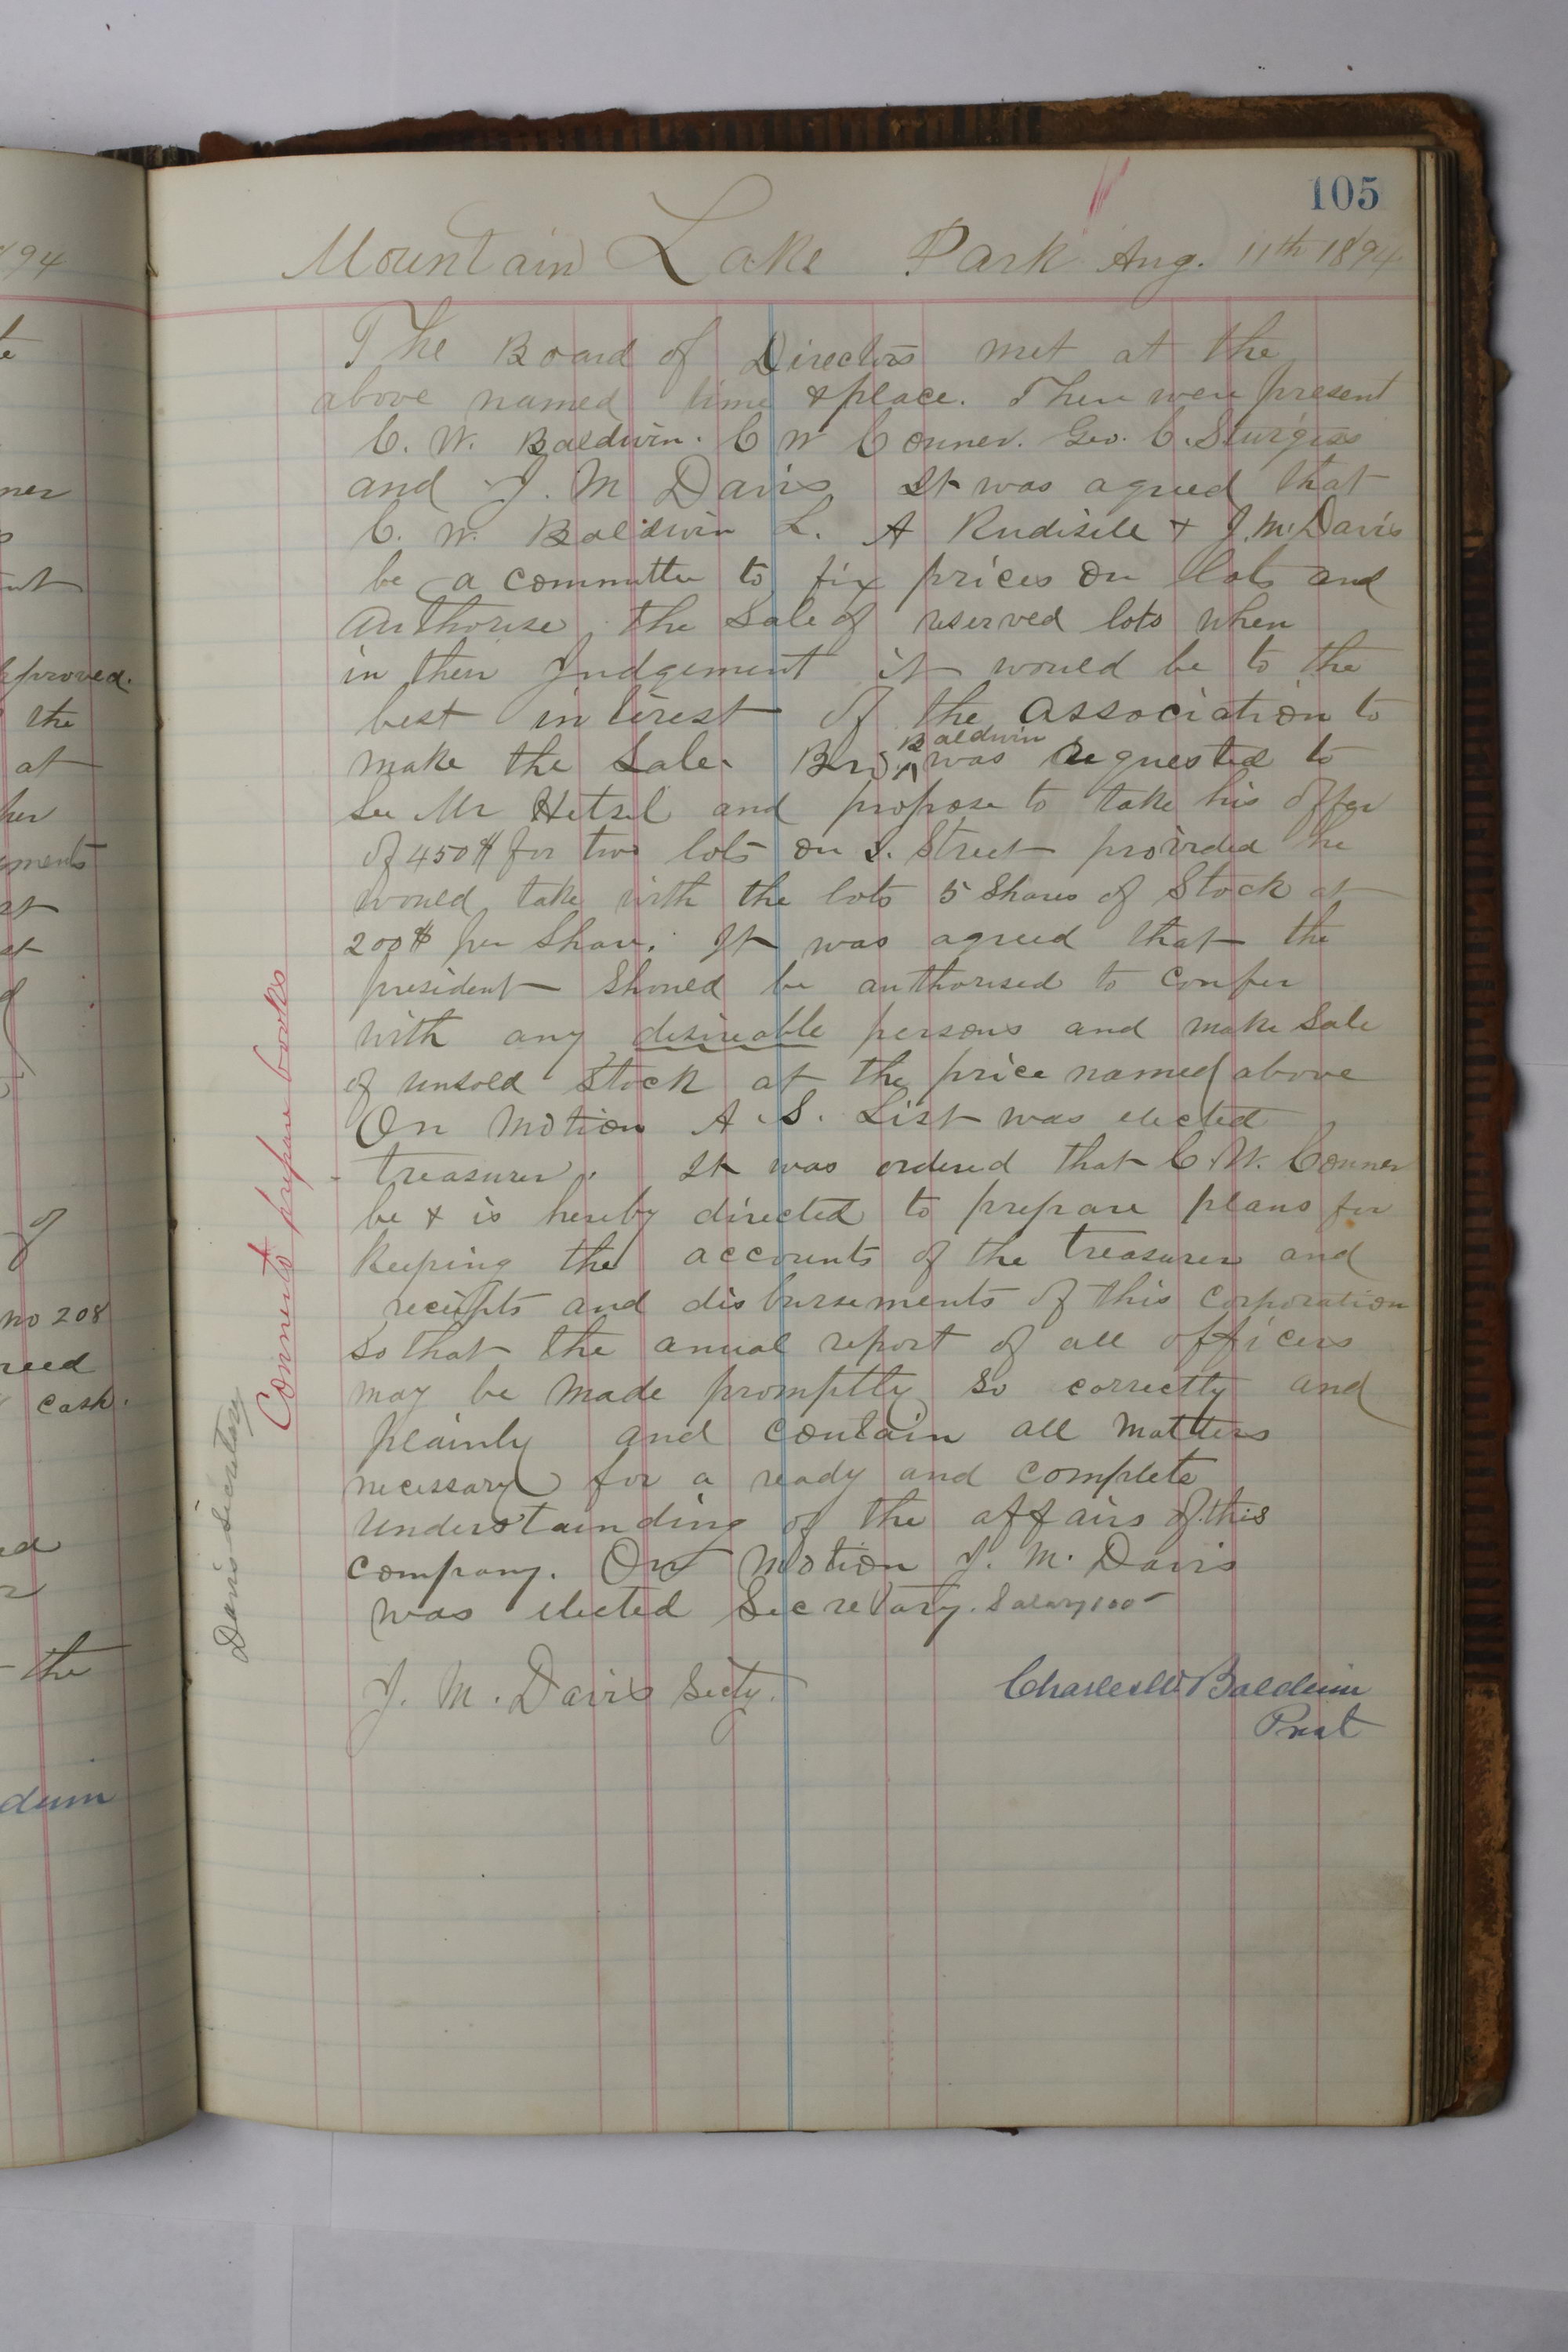 94
te
ner
ut
approved.
the
at
her
ements
st
st
of
no 208
reed
cash.
ed
the
dwin
105
Mountain Lake Park Aug. 11th 1894
The Board of Directors met at the
above named time & place. There were present
C. W. Baldwin. C W Conner. Geo. C. Sturgiss
and J. M Davis It was agreed that
C. W. Baldwin L. A Rudisill + J. M. Davis
be a committee to fix prices on lots and
authorise the sale of reserved lots when
in their Judgement it would be to the
best interest of the association to
make the sale. Bro. Baldwin was requested to
see Mr Hetzel and propose to take his offer
of 450$ for two lots on I. Street provided he
would take with the lots 5 shares of stock at
200$ per share. It was agreed that the
president should be authorised to confer
with any desireable persons and make sale
of unsold stock at the price named above
On motion A. S. List was elected
treasurer. It was ordered that C. W. Conner
be + is hereby directed to prepare plans for
keeping the accounts of the treasurer and
receipts and disbursements of this corporation
so that the anual report of all officers
may be made promptly so correctly and
plainly and contain all matters
necessary for a ready and complete
understainding of the affairs of this
company. On motion J. M. Davis
was elected Secretary. Salary 100-
J. M. Davis Secty. Charles W. Baldwin
Prest
Conner to prepare books
Davis Secretary